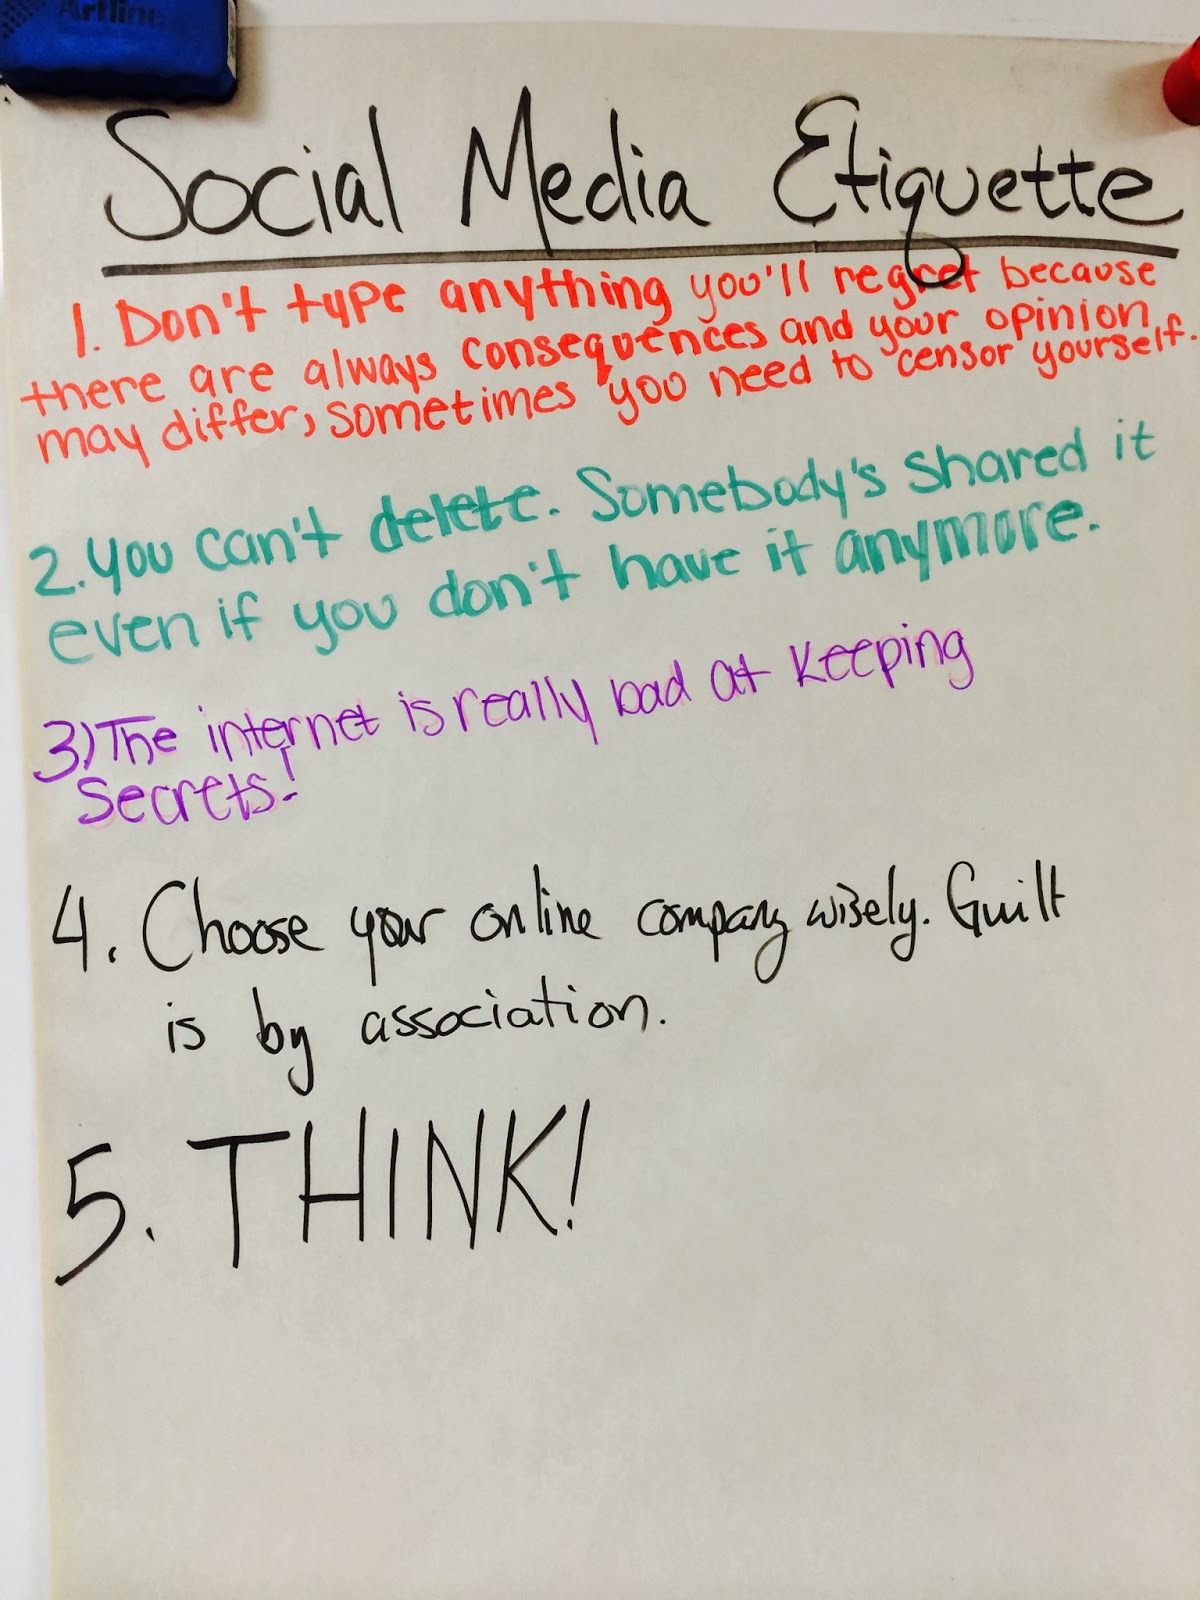 Artline
Social Media Etiquette
1. Don't type anything you'll regret because
there are always consequences and your opinion
may differ, sometimes you need to censor yourself.
2. You can't delete. Somebody's shared it
even if you don't have it anymore.
3) The internet is really bad at keeping
secrets!
4. Choose your online company wisely. Guilt
is by association.
5. THINK!